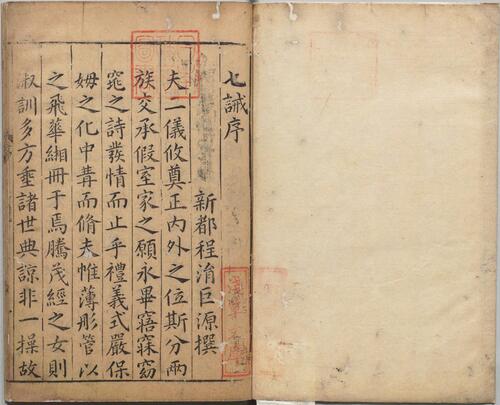 七誡序
新都程涓巨源撰
夫二儀攸奠正內外之位斯分兩
族交承假室家之願永畢寤寐窈
窕之詩發情而止乎禮義式嚴保
姆之化中冓而脩夫帷薄彤管以
之飛華緗冊于焉騰茂經之女則
淑訓多方垂諸世典諒非一操故